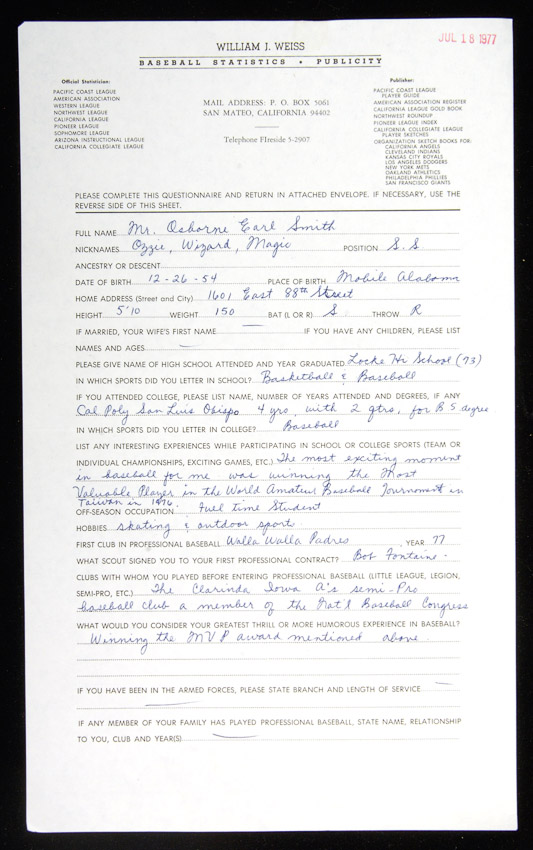 JUL 18 1977
WILLIAM J. WEISS
BASEBALL STATISTICS • PUBLICITY
Official Statistician:
PACIFIC COAST LEAGUE
AMERICAN ASSOCIATION
WESTERN LEAGUE
NORTHWEST LEAGUE
CALIFORNIA LEAGUE
PIONEER LEAGUE
SOPHOMORE LEAGUE
ARIZONA INSTRUCTIONAL LEAGUE
CALIFORNIA COLLEGIATE LEAGUE
MAIL ADDRESS: P. O. BOX 5061
SAN MATEO, CALIFORNIA 94402
Telephone FIreside 5-2907
Publisher:
PACIFIC COAST LEAGUE
PLAYER GUIDE
AMERICAN ASSOCIATION REGISTER
CALIFORNIA LEAGUE GOLD BOOK
NORTHWEST ROUNDUP
PIONEER LEAGUE INDEX
CALIFORNIA COLLEGIATE LEAGUE
PLAYER SKETCHES
ORGANIZATION SKETCH BOOKS FOR:
CALIFORNIA ANGELS
CLEVELAND INDIANS
KANSAS CITY ROYALS
LOS ANGELES DODGERS
NEW YORK METS
OAKLAND ATHLETICS
PHILADELPHIA PHILLIES
SAN FRANCISCO GIANTS
PLEASE COMPLETE THIS QUESTIONNAIRE AND RETURN IN ATTACHED ENVELOPE. IF NECESSARY, USE THE
REVERSE SIDE OF THIS SHEET.
FULL NAME Mr. Osborne Earl Smith
NICKNAMES Ozzie, Wizard, Magic POSITION S.S
ANCESTRY OR DESCENT
DATE OF BIRTH 12-26-54 PLACE OF BIRTH Mobile Alabama
HOME ADDRESS (Street and City) 1601 East 88th Street
HEIGHT 5'10 WEIGHT 150 BAT (L OR R) S THROW R
IF MARRIED, YOUR WIFE'S FIRST NAME — IF YOU HAVE ANY CHILDREN, PLEASE LIST
NAMES AND AGES —
PLEASE GIVE NAME OF HIGH SCHOOL ATTENDED AND YEAR GRADUATED Locke Hi School (73)
IN WHICH SPORTS DID YOU LETTER IN SCHOOL? Basketball & Baseball
IF YOU ATTENDED COLLEGE, PLEASE LIST NAME, NUMBER OF YEARS ATTENDED AND DEGREES, IF ANY
Cal Poly San Luis Obispo 4 yrs, with 2 qtrs, for B S degree
IN WHICH SPORTS DID YOU LETTER IN COLLEGE? Baseball
LIST ANY INTERESTING EXPERIENCES WHILE PARTICIPATING IN SCHOOL OR COLLEGE SPORTS (TEAM OR
INDIVIDUAL CHAMPIONSHIPS, EXCITING GAMES, ETC.) The most exciting moment
in baseball for me was winning the Most
Valuable Player in the World Amateur Baseball Tournament in
Taiwan in 1976.
OFF-SEASON OCCUPATION Full time Student
HOBBIES skating & outdoor sport
FIRST CLUB IN PROFESSIONAL BASEBALL Walla Walla Padres YEAR 77
WHAT SCOUT SIGNED YOU TO YOUR FIRST PROFESSIONAL CONTRACT? Bob Fontaine -
CLUBS WITH WHOM YOU PLAYED BEFORE ENTERING PROFESSIONAL BASEBALL (LITTLE LEAGUE, LEGION,
SEMI-PRO, ETC.) The Clarinda Iowa A's semi-Pro
baseball club a member of the Nat'l Baseball Congress
WHAT WOULD YOU CONSIDER YOUR GREATEST THRILL OR MORE HUMOROUS EXPERIENCE IN BASEBALL?
Winning the MVP award mentioned above.
IF YOU HAVE BEEN IN THE ARMED FORCES, PLEASE STATE BRANCH AND LENGTH OF SERVICE —
—
IF ANY MEMBER OF YOUR FAMILY HAS PLAYED PROFESSIONAL BASEBALL, STATE NAME, RELATIONSHIP
TO YOU, CLUB AND YEAR(S) —